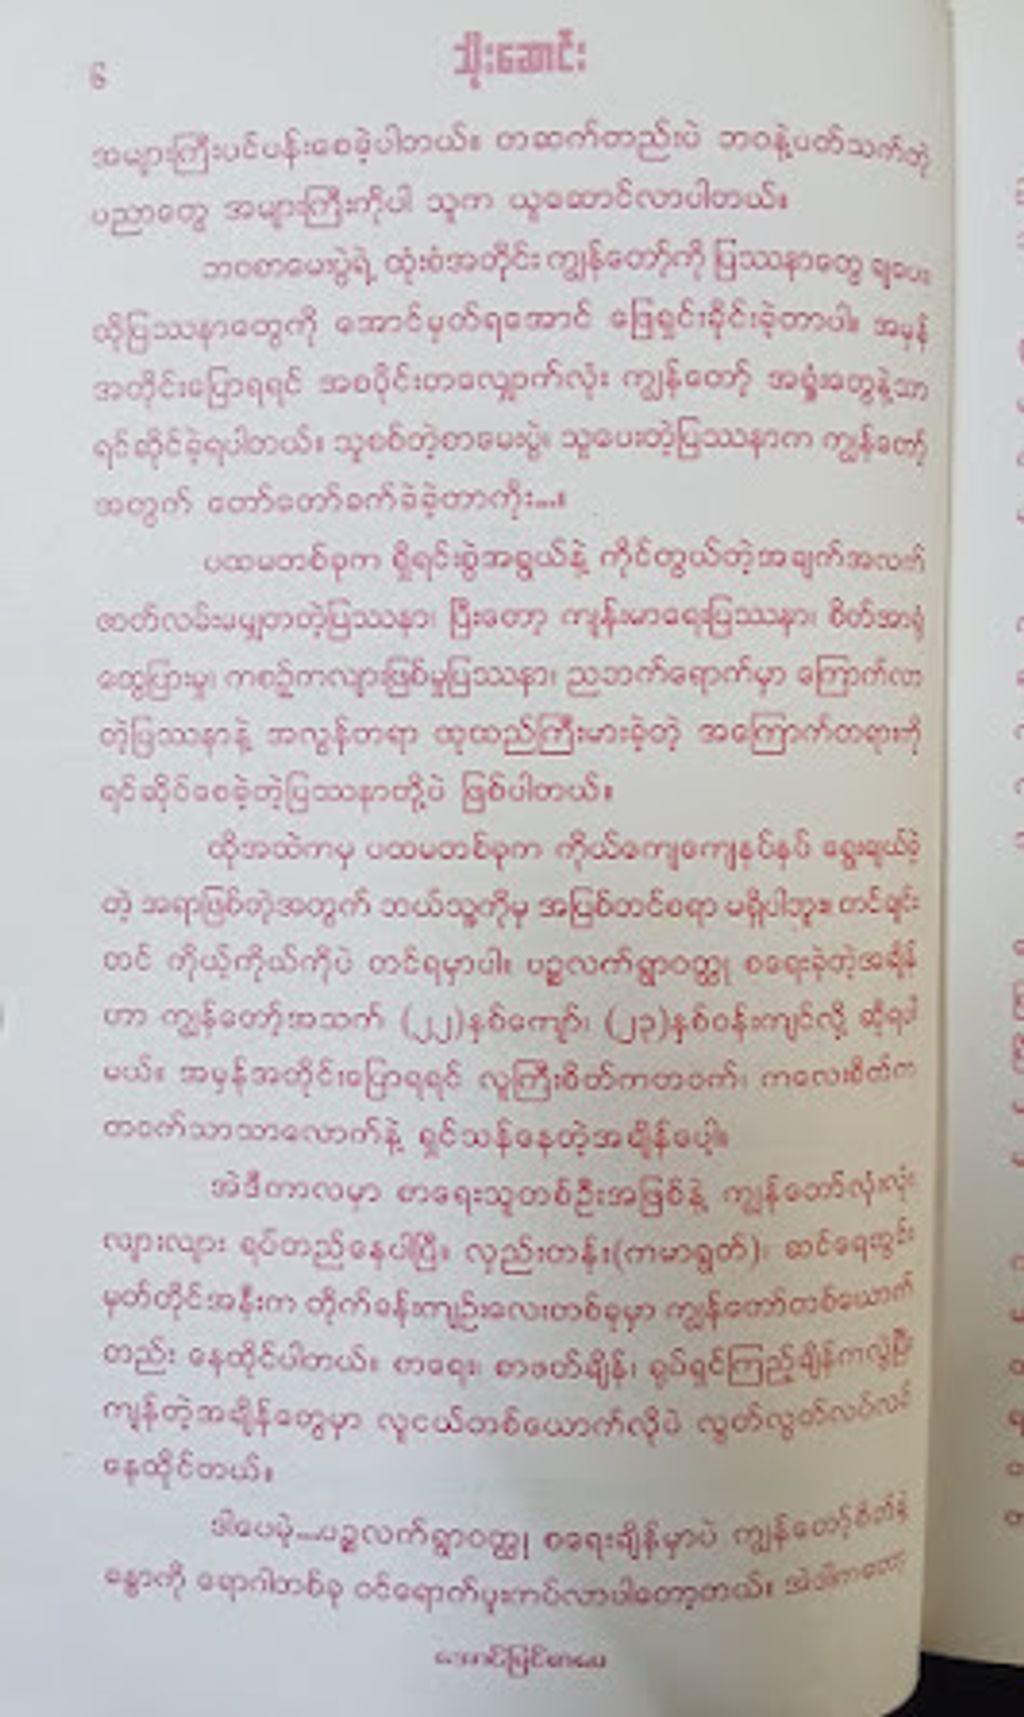 ၆
သိုးဆောင်း
အများကြီးပင်ပန်းစေခဲ့ပါတယ်။ တဆက်တည်းပဲ ဘဝနဲ့ပတ်သက်တဲ့
ပညာတွေ အများကြီးကိုပါ သူက ယူဆောင်လာပါတယ်။
ဘဝစာမေးပွဲရဲ့ ထုံးစံအတိုင်း ကျွန်တော့်ကို ပြဿနာတွေ ချပေး
လို့ပြဿနာတွေကို အောင်မှတ်ရအောင် ဖြေရှင်းခိုင်းခဲ့တာပါ။ အမှန်
အတိုင်းပြောရရင် အစပိုင်းတလျှောက်လုံး ကျွန်တော့် အရှုံးတွေနဲ့သာ
ရင်ဆိုင်ခဲ့ရပါတယ်။ သူစစ်တဲ့စာမေးပွဲ၊ သူပေးတဲ့ပြဿနာက ကျွန်တော့်
အတွက် တော်တော်ခက်ခဲခဲ့တာကိုး...။
ပထမတစ်ခုက ရှိရင်းစွဲအရွယ်နဲ့ ကိုင်တွယ်တဲ့အချက်အလက်
ဇာတ်လမ်းမမျှတတဲ့ပြဿနာ၊ ပြီးတော့ ကျန်းမာရေးပြဿနာ၊ စိတ်အာရုံ
ထွေပြားမှု၊ ကစဉ့်ကလျားဖြစ်မှုပြဿနာ၊ ညဘက်ရောက်မှာ ကြောက်လာ
တဲ့ပြဿနာနဲ့ အလွန်တရာ ထုထည်ကြီးမားခဲ့တဲ့ အကြောက်တရားကို
ရင်ဆိုင်စေခဲ့တဲ့ပြဿနာတို့ပဲ ဖြစ်ပါတယ်။
ထိုအထဲကမှ ပထမတစ်ခုက ကိုယ်ကျေကျေနပ်နပ် ရွေးချယ်ခဲ့
တဲ့ အရာဖြစ်တဲ့အတွက် ဘယ်သူ့ကိုမှ အပြစ်တင်စရာ မရှိပါဘူး။ တင်ချင်း
တင် ကိုယ့်ကိုယ်ကိုပဲ တင်ရမှာပါ။ ပဉ္စလက်ရွာဝတ္ထု စရေးခဲ့တဲ့အချိန်
ဟာ ကျွန်တော့်အသက် (၂၂)နှစ်ကျော်၊ (၂၃)နှစ်ဝန်းကျင်လို့ ဆိုရပါ
မယ်။ အမှန်အတိုင်းပြောရရင် လူကြီးစိတ်ကတဝက်၊ ကလေးစိတ်က
တဝက်သာသာလောက်နဲ့ ရှင်သန်နေတဲ့အချိန်ပေါ့။
အဲဒီကာလမှာ စာရေးသူတစ်ဦးအဖြစ်နဲ့ ကျွန်တော်လုံးလုံး
လျားလျား ရပ်တည်နေပါပြီ။ လှည်းတန်း(ကမာရွတ်)၊ ဆင်ရေတွင်း
မှတ်တိုင်အနီးက တိုက်ခန်းကျဉ်းလေးတစ်ခုမှာ ကျွန်တော်တစ်ယောက်
တည်း နေထိုင်ပါတယ်။ စာရေး၊ စာဖတ်ချိန်၊ ရုပ်ရှင်ကြည့်ချိန်ကလွဲပြီး
ကျန်တဲ့အချိန်တွေမှာ လူငယ်တစ်ယောက်လိုပဲ လွတ်လွတ်လပ်လပ်
နေထိုင်တယ်။
ဒါပေမဲ့...ပဉ္စလက်ရွာဝတ္ထု စရေးချိန်မှာပဲ ကျွန်တော့်စိတ်နဲ့
ခန္ဓာကို ရောဂါတစ်ခု ဝင်ရောက်ပူးကပ်လာပါတော့တယ်။ အဲဒါကတော့
အောင်မြင်စာပေ